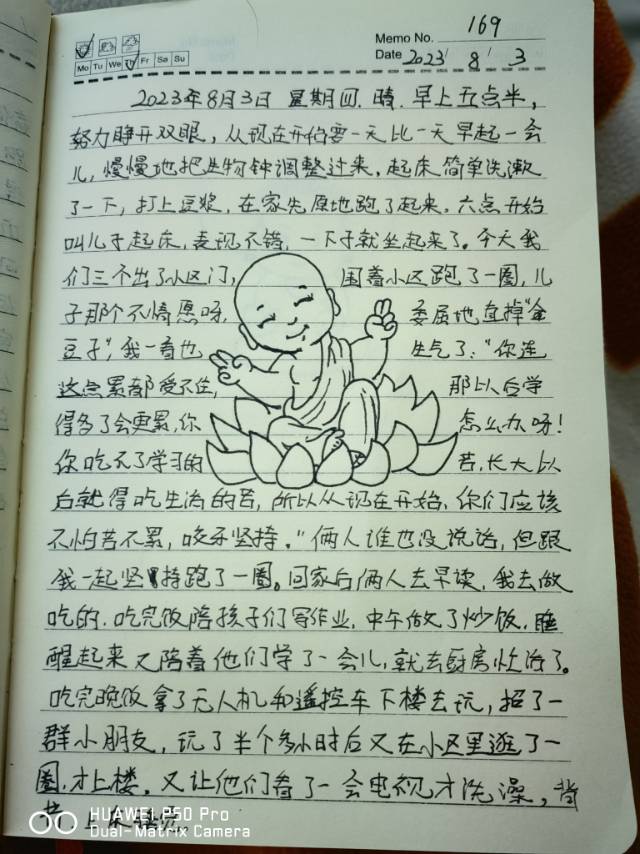 Memo No. 169
Mo Tu We Th Fr Sa Su
Date 2023/ 8/ 3
2023年8月3日 星期四. 晴. 早上五点半,
努力睁开双眼, 从现在开始要一天比一天早起一会
儿, 慢慢地把生物钟调整过来. 起床简单洗漱
了一下, 打上豆浆, 在家先原地跑了起来. 六点开始
叫儿子起床, 表现不错, 一下子就坐起来了. 今天我
们三个出了小区门, 围着小区跑了一圈, 儿
子那个不情愿呀, 委屈地直掉“金
豆子”, 我一看也生气了: “你连
这点累都受不住, 那以后学
得多了会更累, 你怎么办呀!
你吃不了学习的苦, 长大以
后就得吃生活的苦, 所以从现在开始, 你们应该
不怕苦不累, 咬牙坚持. ” 俩人谁也没说话, 但跟
我一起坚持跑了一圈. 回家后俩人去早读, 我去做
吃的. 吃完饭陪孩子们写作业, 中午做了炒饭. 睡
醒起来又陪着他们学了一会儿, 就去厨房忙活了.
吃完晚饭拿了无人机和遥控车下楼去玩, 招了一
群小朋友, 玩了半个多小时后又在小区里逛了一
圈, 才上楼. 又让他们看了一会电视才洗澡, 背
书上床
HUAWEI P50 Pro
Dual-Matrix Camera